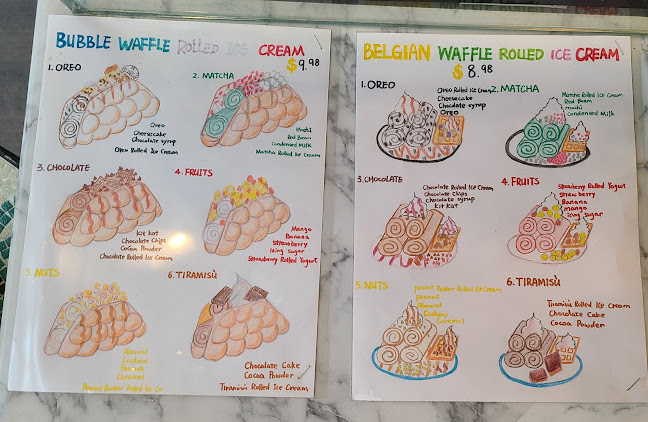 BUBBLE WAFFLE ROLLED ICE CREAM
$9.98
1. OREO
Oreo
Cheesecake
Chocolate syrup
Oreo Rolled Ice Cream
2. MATCHA
Mochi
Red Bean
Condensed Milk
Matcha Rolled Ice Cream
3. CHOCOLATE
Kit Kat
Chocolate Chips
Cocoa Powder
Chocolate Rolled Ice Cream
4. FRUITS
Mango
Banana
Strawberry
Icing Sugar
Strawberry Rolled Yogurt
5. NUTS
Almond
Cashew
Peanut
Caramel
Peanut Butter Rolled Ice
6. TIRAMISÙ
Chocolate Cake
Cocoa Powder
Tiramisù Rolled Ice Cream
BELGIAN WAFFLE ROLLED ICE CREAM
$8.98
1. OREO
Oreo Rolled Ice Cream
Cheesecake
Chocolate syrup
Oreo
2. MATCHA
Matcha Rolled Ice Cream
Red Bean
mochi
Condensed Milk
3. CHOCOLATE
Chocolate Rolled Ice Cream
Chocolate Chips
Chocolate syrup
Kit Kat
4. FRUITS
Strawberry Rolled Yogurt
Strawberry
Banana
mango
icing sugar
5. NUTS
peanut Butter Rolled Ice Cream
peanut
Almond
Cashew
Caramel
6. TIRAMISÙ
Tiramisù Rolled Ice Cream
Chocolate Cake
Cocoa Powder